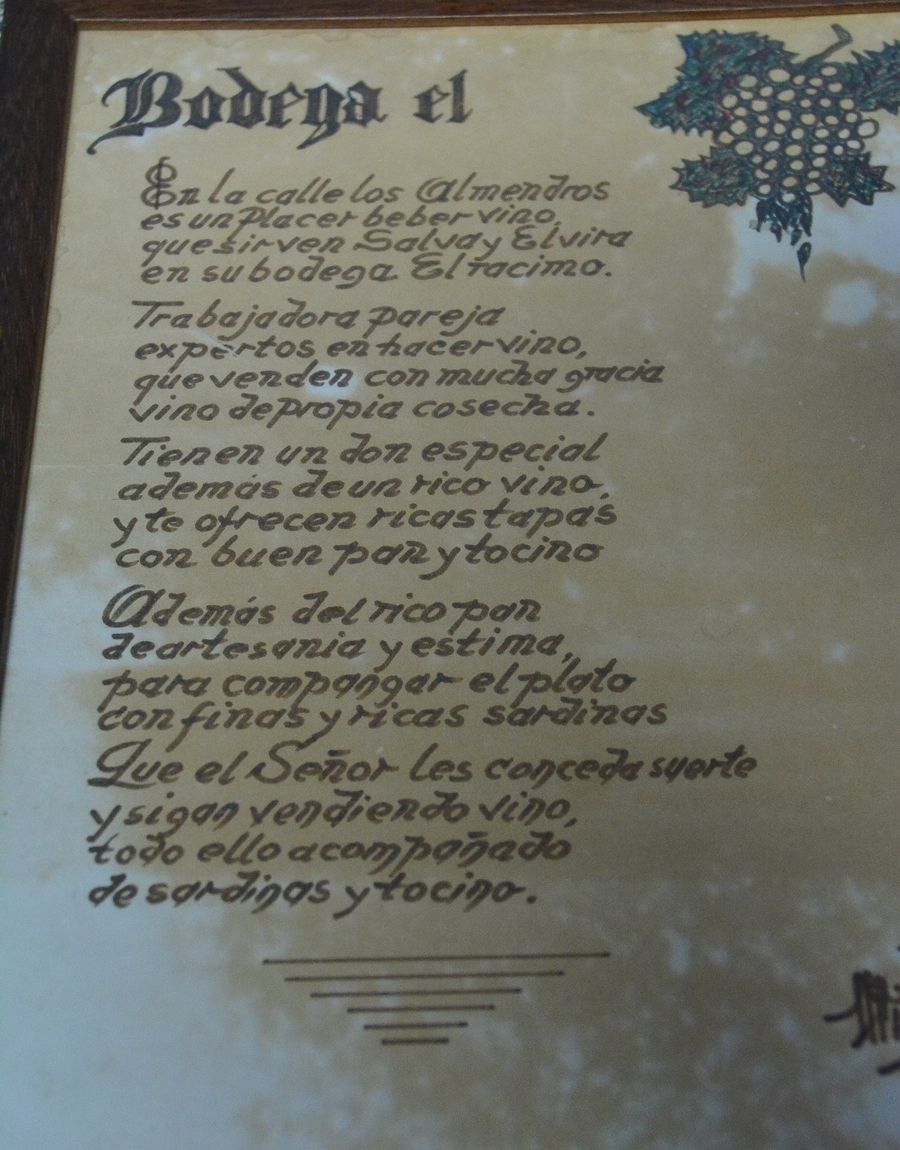 Bodega el
En la calle los Almendros
es un placer beber vino,
que sirven Salva y Elvira
en su bodega El racimo.
Trabajadora pareja
expertos en hacer vino,
que venden con mucha gracia
vino de propia cosecha.
Tienen un don especial
además de un rico vino,
y te ofrecen ricas tapas
con buen pan y tocino
Además del rico pan
de artesania y estima,
para compangar el plato
con finas y ricas sardinas
Que el Señor les conceda suerte
y sigan vendiendo vino,
todo ello acompañado
de sardinas y tocino.